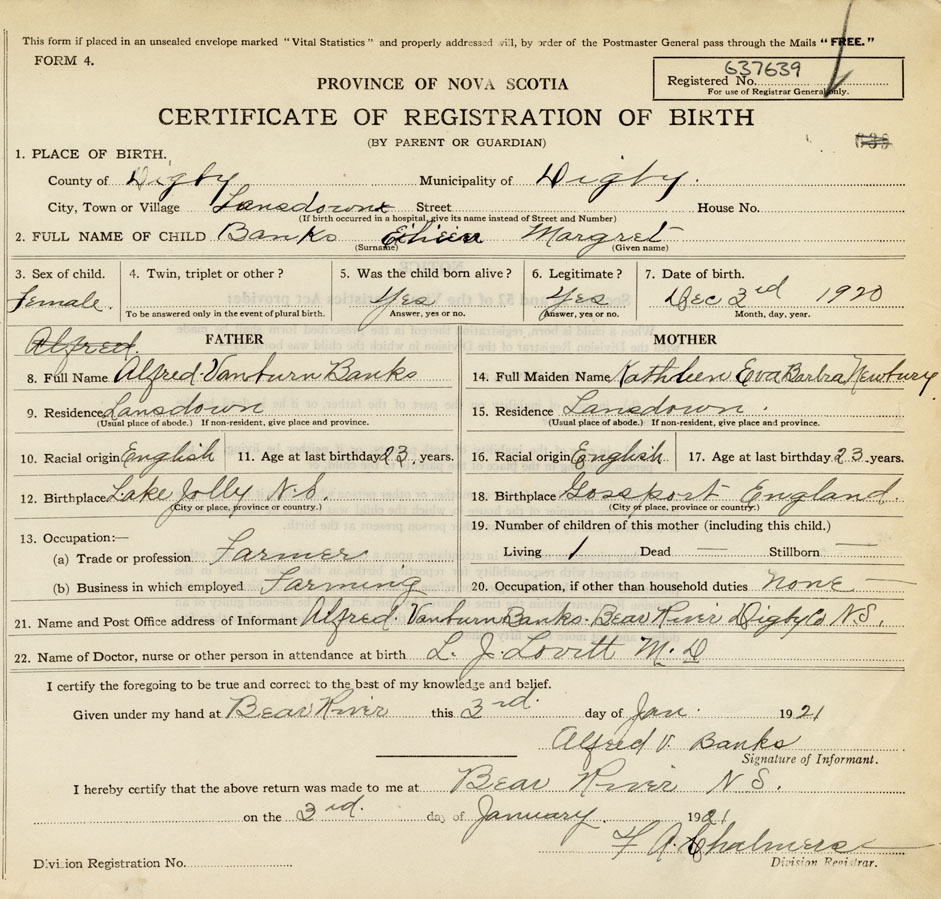 This form if placed in an unsealed envelope marked "Vital Statistics" and properly addressed will, by order of the Postmaster General pass through the Mails "FREE."
FORM 4.
637639
Registered No.
For use of Registrar General only.
PROVINCE OF NOVA SCOTIA
CERTIFICATE OF REGISTRATION OF BIRTH
(BY PARENT OR GUARDIAN)
1. PLACE OF BIRTH.
County of Digby Municipality of Digby.
City, Town or Village Lansdowne Street House No.
(If birth occurred in a hospital, give its name instead of Street and Number)
2. FULL NAME OF CHILD Banks Eileen Margret
(Surname) (Given name)
3. Sex of child. 4. Twin, triplet or other? 5. Was the child born alive? 6. Legitimate? 7. Date of birth.
Female. Yes Yes Dec 3rd 1920
To be answered only in the event of plural birth. Answer, yes or no. Answer, yes or no. Month, day, year.
Alfred. FATHER MOTHER
8. Full Name Alfred Vanburn Banks 14. Full Maiden Name Kathleen Eva Barbra Newbury.
9. Residence Lansdown 15. Residence Lansdown.
(Usual place of abode.) If non-resident, give place and province. (Usual place of abode.) If non-resident, give place and province.
10. Racial origin English 11. Age at last birthday 23. years. 16. Racial origin English 17. Age at last birthday 23. years.
12. Birthplace Lake Jolly N.S. 18. Birthplace Gossport England.
(City or place, province or country.) (City or place, province or country.)
13. Occupation:— 19. Number of children of this mother (including this child.)
(a) Trade or profession Farmer Living 1 Dead — Stillborn —
(b) Business in which employed Farming 20. Occupation, if other than household duties none —
21. Name and Post Office address of Informant Alfred Vanburn Banks. Bear River Digby Co N.S.
22. Name of Doctor, nurse or other person in attendance at birth L. J. Lovitt M.D
I certify the foregoing to be true and correct to the best of my knowledge and belief.
Given under my hand at Bear River this 3rd. day of Jan. 1921
Alfred V. Banks
Signature of Informant.
I hereby certify that the above return was made to me at Bear River N.S.
on the 3rd. day of January. 1921
F. A. Chalmers
Division Registrar.
Division Registration No.